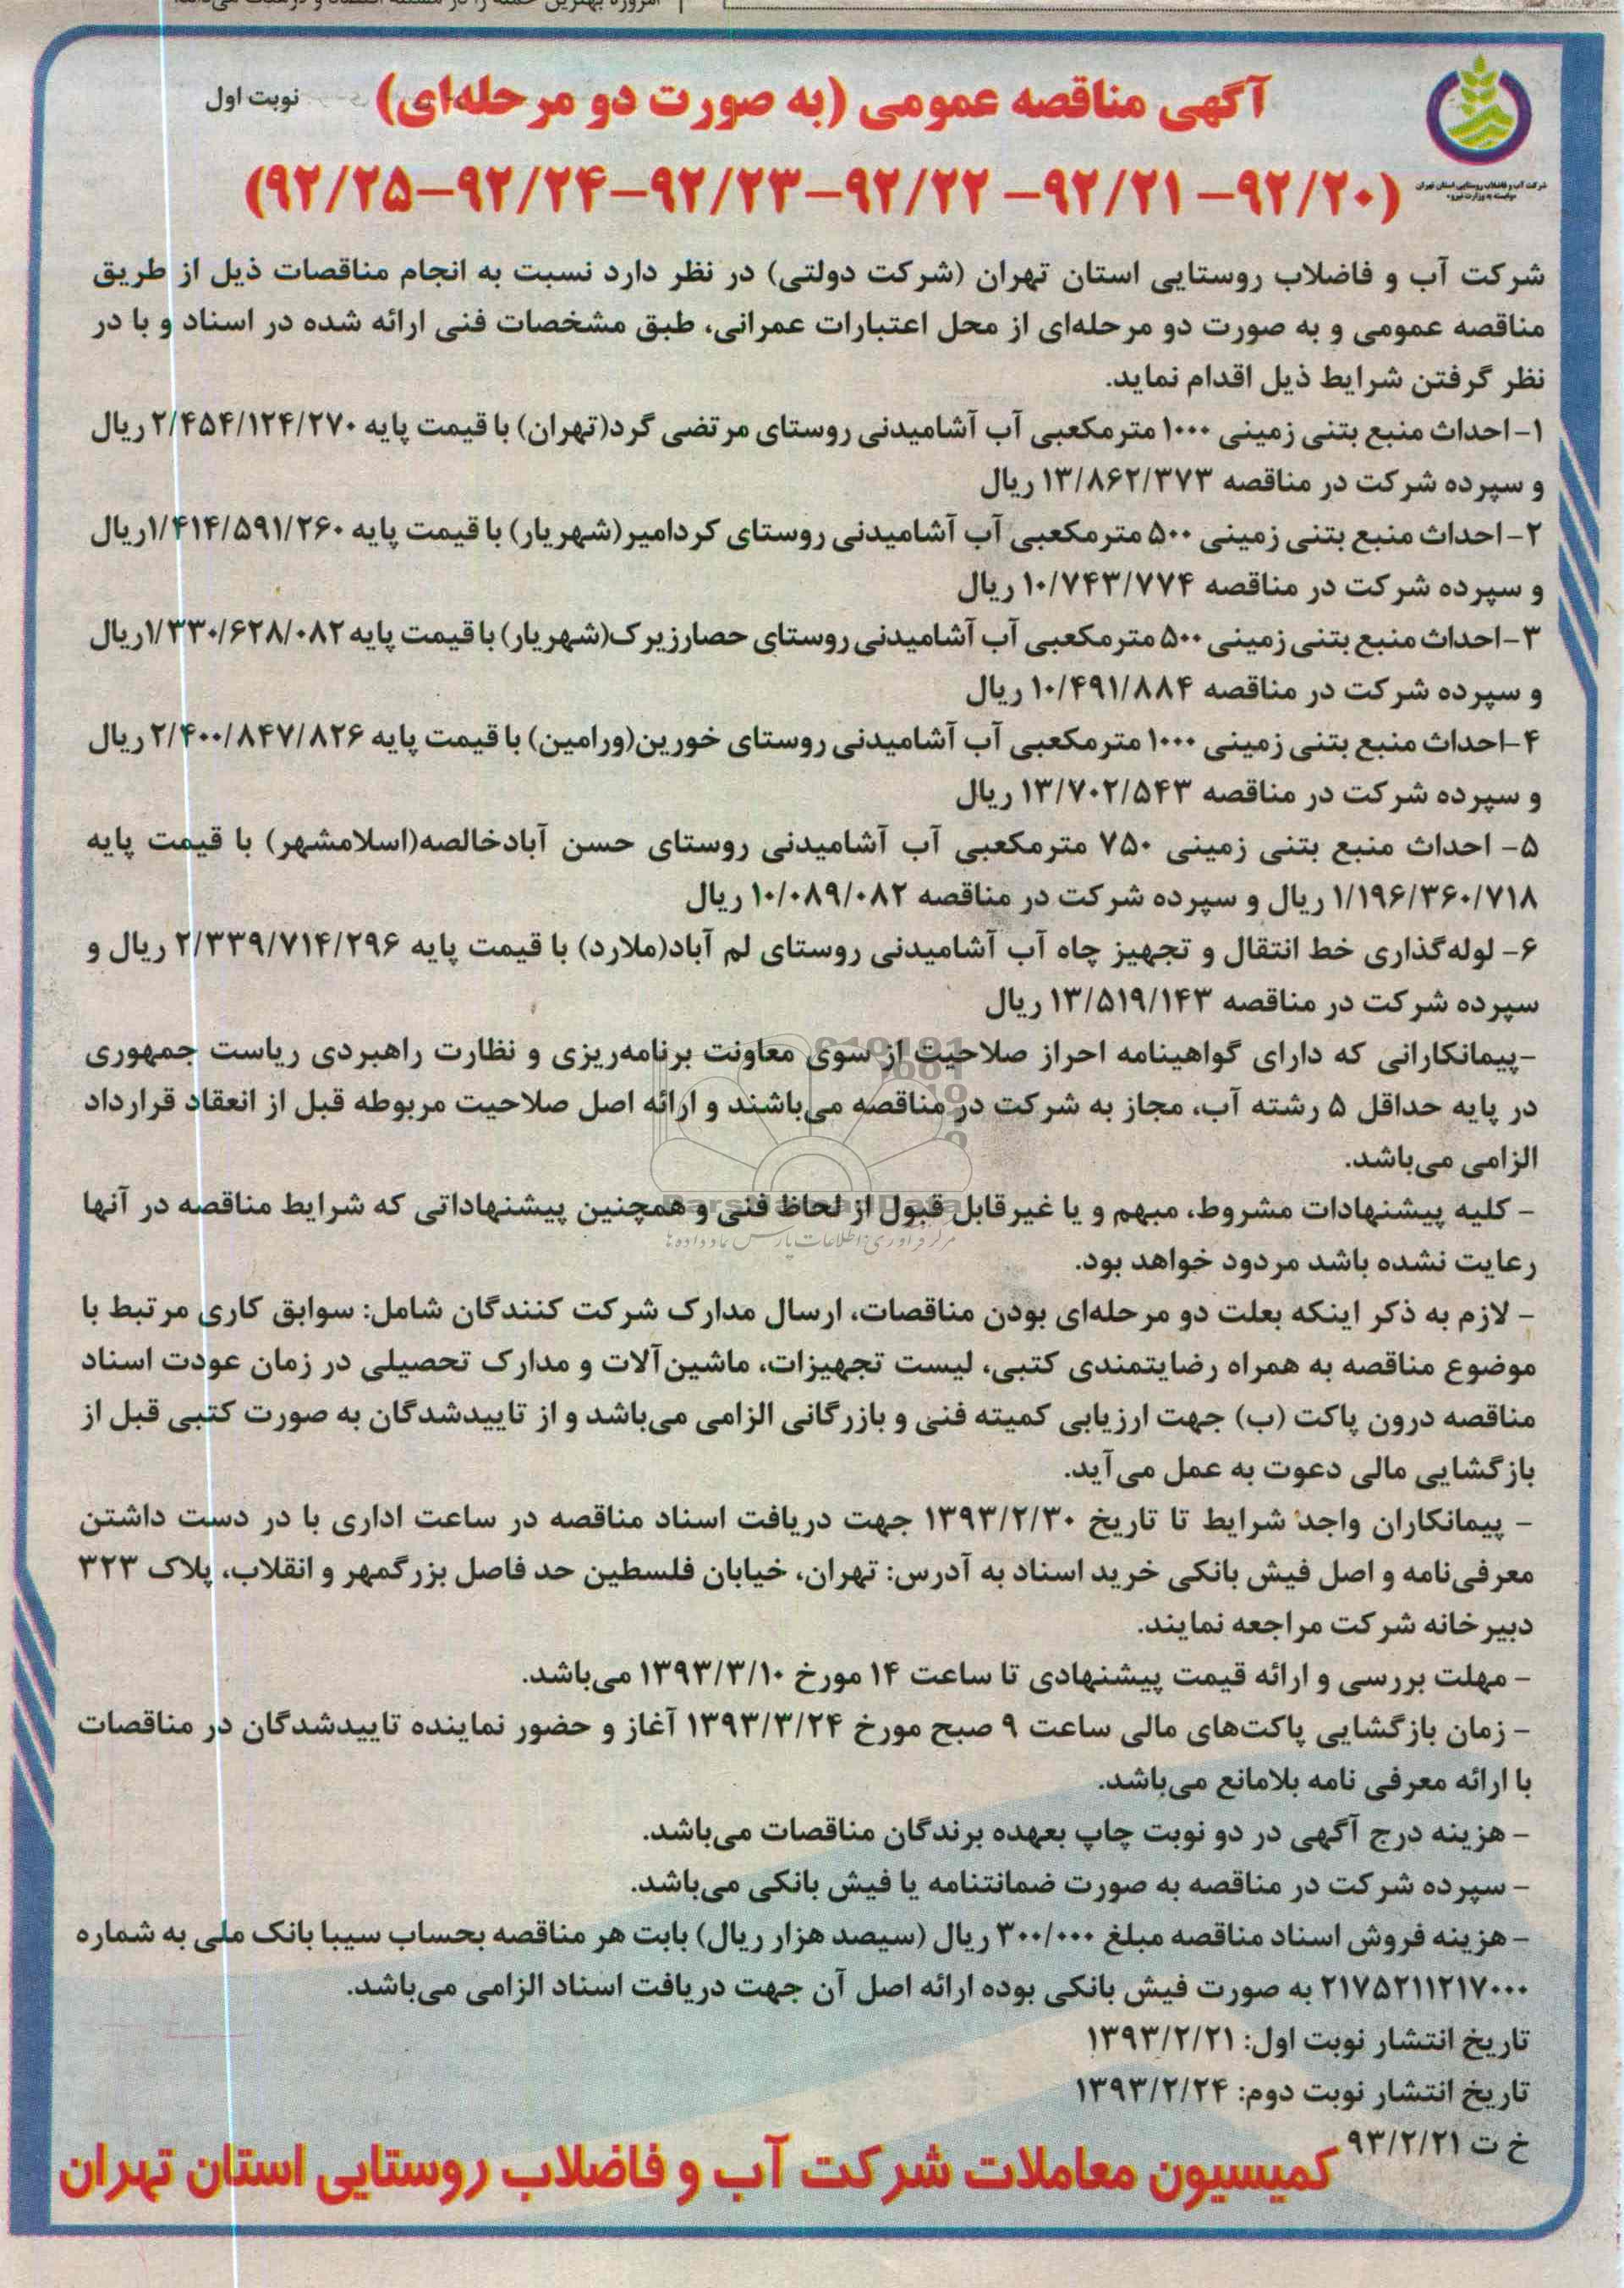 آگهی مناقصه عمومی (به صورت دو مرحله‌ای)
نوبت اول
(۹۲/۲۰– ۹۲/۲۱– ۹۲/۲۲–۹۲/۲۳–۹۲/۲۴–۹۲/۲۵)
شرکت آب و فاضلاب روستایی استان تهران
«وابسته به وزارت نیرو»
شرکت آب و فاضلاب روستایی استان تهران (شرکت دولتی) در نظر دارد نسبت به انجام مناقصات ذیل از طریق
مناقصه عمومی و به صورت دو مرحله‌ای از محل اعتبارات عمرانی، طبق مشخصات فنی ارائه شده در اسناد و با در
نظر گرفتن شرایط ذیل اقدام نماید.
۱- احداث منبع بتنی زمینی ۱۰۰۰ مترمکعبی آب آشامیدنی روستای مرتضی گرد(تهران) با قیمت پایه ۲/۴۵۴/۱۲۴/۲۷۰ ریال
و سپرده شرکت در مناقصه ۱۳/۸۶۲/۳۷۳ ریال
۲- احداث منبع بتنی زمینی ۵۰۰ مترمکعبی آب آشامیدنی روستای کردامیر(شهریار) با قیمت پایه ۱/۴۱۴/۵۹۱/۲۶۰ریال
و سپرده شرکت در مناقصه ۱۰/۷۴۳/۷۷۴ ریال
۳-احداث منبع بتنی زمینی ۵۰۰ مترمکعبی آب آشامیدنی روستای حصارزیرک(شهریار) با قیمت پایه ۱/۳۳۰/۶۲۸/۰۸۲ریال
و سپرده شرکت در مناقصه ۱۰/۴۹۱/۸۸۴ ریال
۴-احداث منبع بتنی زمینی ۱۰۰۰ مترمکعبی آب آشامیدنی روستای خورین(ورامین) با قیمت پایه ۲/۴۰۰/۸۴۷/۸۲۶ ریال
و سپرده شرکت در مناقصه ۱۳/۷۰۲/۵۴۳ ریال
۵- احداث منبع بتنی زمینی ۷۵۰ مترمکعبی آب آشامیدنی روستای حسن آبادخالصه(اسلامشهر) با قیمت پایه
۱/۱۹۶/۳۶۰/۷۱۸ ریال و سپرده شرکت در مناقصه ۱۰/۰۸۹/۰۸۲ ریال
۶- لوله‌گذاری خط انتقال و تجهیز چاه آب آشامیدنی روستای لم آباد(ملارد) با قیمت پایه ۲/۳۳۹/۷۱۴/۲۹۶ ریال و
سپرده شرکت در مناقصه ۱۳/۵۱۹/۱۴۳ ریال
-پیمانکارانی که دارای گواهینامه احراز صلاحیت از سوی معاونت برنامه‌ریزی و نظارت راهبردی ریاست جمهوری
در پایه حداقل ۵ رشته آب، مجاز به شرکت در مناقصه می‌باشند و ارائه اصل صلاحیت مربوطه قبل از انعقاد قرارداد
الزامی می‌باشد.
- کلیه پیشنهادات مشروط، مبهم و یا غیرقابل قبول از لحاظ فنی و همچنین پیشنهاداتی که شرایط مناقصه در آنها
رعایت نشده باشد مردود خواهد بود.
- لازم به ذکر اینکه بعلت دو مرحله‌ای بودن مناقصات، ارسال مدارک شرکت کنندگان شامل: سوابق کاری مرتبط با
موضوع مناقصه به همراه رضایتمندی کتبی، لیست تجهیزات، ماشین‌آلات و مدارک تحصیلی در زمان عودت اسناد
مناقصه درون پاکت (ب) جهت ارزیابی کمیته فنی و بازرگانی الزامی می‌باشد و از تاییدشدگان به صورت کتبی قبل از
بازگشایی مالی دعوت به عمل می‌آید.
- پیمانکاران واجد شرایط تا تاریخ ۱۳۹۳/۲/۳۰ جهت دریافت اسناد مناقصه در ساعت اداری با در دست داشتن
معرفی‌نامه و اصل فیش بانکی خرید اسناد به آدرس: تهران، خیابان فلسطین حد فاصل بزرگمهر و انقلاب، پلاک ۳۲۳
دبیرخانه شرکت مراجعه نمایند.
- مهلت بررسی و ارائه قیمت پیشنهادی تا ساعت ۱۴ مورخ ۱۳۹۳/۳/۱۰ می‌باشد.
- زمان بازگشایی پاکت‌های مالی ساعت ۹ صبح مورخ ۱۳۹۳/۳/۲۴ آغاز و حضور نماینده تاییدشدگان در مناقصات
با ارائه معرفی نامه بلامانع می‌باشد.
- هزینه درج آگهی در دو نوبت چاپ بعهده برندگان مناقصات می‌باشد.
- سپرده شرکت در مناقصه به صورت ضمانتنامه یا فیش بانکی می‌باشد.
- هزینه فروش اسناد مناقصه مبلغ ۳۰۰/۰۰۰ ریال (سیصد هزار ریال) بابت هر مناقصه بحساب سیبا بانک ملی به شماره
۲۱۷۵۲۱۱۲۱۷۰۰۰ به صورت فیش بانکی بوده ارائه اصل آن جهت دریافت اسناد الزامی می‌باشد.
تاریخ انتشار نوبت اول: ۱۳۹۳/۲/۲۱
تاریخ انتشار نوبت دوم: ۱۳۹۳/۲/۲۴
خ ت ۹۳/۲/۲۱
کمیسیون معاملات شرکت آب و فاضلاب روستایی استان تهران